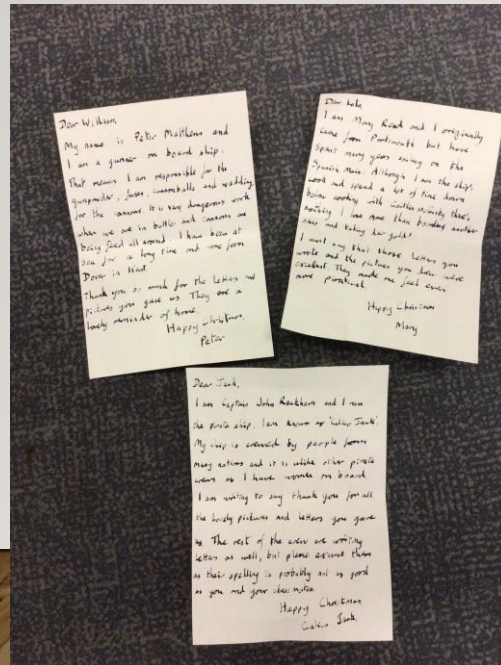 Dear William,
My name is Peter Matthews and
I am a gunner on board ship.
That means I am responsible for the
gunpowder, fuses, cannonballs and wadding
for the cannons. It is very dangerous work
when we are in battle and cannons are
being fired all around. I have been at
sea for a long time and come from
Dover in Kent.
Thank you so much for the letters and
pictures you gave us. They are a
lovely reminder of home.
Happy Christmas,
Peter
Dear
I am Mary Read and I originally
come from Portsmouth but have
spent many years sailing on the
Spanish Main. Although I am the ship's
cook and spend a lot of time down
below cooking with there's
nothing I love more than boarding another
ship and taking her gold!
I must say that those letters you
wrote and the pictures you drew were
excellent. They made me feel even
more piratical.
Happy Christmas
Mary
Dear Jack,
I am Captain John Rackham and I run
the pirate ship. I am known as 'Calico Jack'.
My ship is crewed by people from
many nations and it is unlike other pirate
crews as I have women on board.
I am writing to say thank you for all
the lovely pictures and letters you gave
us. The rest of the crew are writing
letters as well, but please excuse them
as their spelling is probably not as good
as you and your classmates.
Happy Christmas,
Calico Jack.